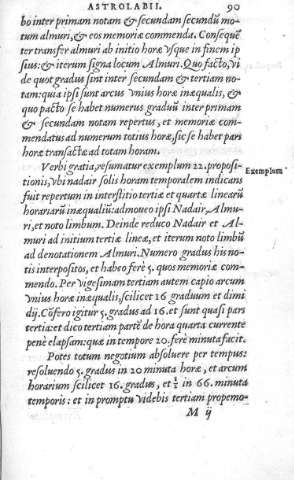 ASTROLABII. 90
bo inter primam notam & secundam secundū mo-
tum almuri, & eos memoriæ commenda. Consequē
ter transfer almuri ab initio horæ vsque in finem ip
sius: & iterum signa locum Almuri. Quo facto, vi
de quot gradus sint inter secundam & tertiam no-
tam: quia ipsi sunt arcus vnius horæ inæqualis, &
quo pacto se habet numerus graduū inter primam
& secundam notam repertus, et memoriæ com-
mendatus ad numerum totius horæ, sic se habet pars
horæ transactæ ad totam horam.
Verbi gratia, resumatur exemplum 22. proposi-
tionis, vbi nadair solis horam temporalem indicans
Exemplum
fuit repertum in interstitio tertiæ et quartæ linearū
horariarū inæqualiū: admoueo ipsi Nadair, Almu-
ri, et noto limbum. Deinde reduco Nadair et Al-
muri ad initium tertiæ lineæ, et iterum noto limbū
ad denotationem Almuri. Numero gradus his no-
tis interpositos, et habeo ferè 5. quos memoriæ com-
mendo. Per vigesimam tertiam autem capio arcum
vnius horæ inæqualis, scilicet 16 graduum et dimi
dij. Cōfero igitur 5. gradus ad 16. et sunt quasi pars
tertia: et dico tertiam partē de hora quarta currente
penè elapsam: quæ in tempore 20. ferè minuta facit.
Potes totum negotium absoluere per tempus:
resoluendo 5. gradus in 20 minuta horæ, et arcum
horarium scilicet 16. gradus, et ½ in 66. minuta
temporis: et in promptu videbis tertiam propemo-
M ij